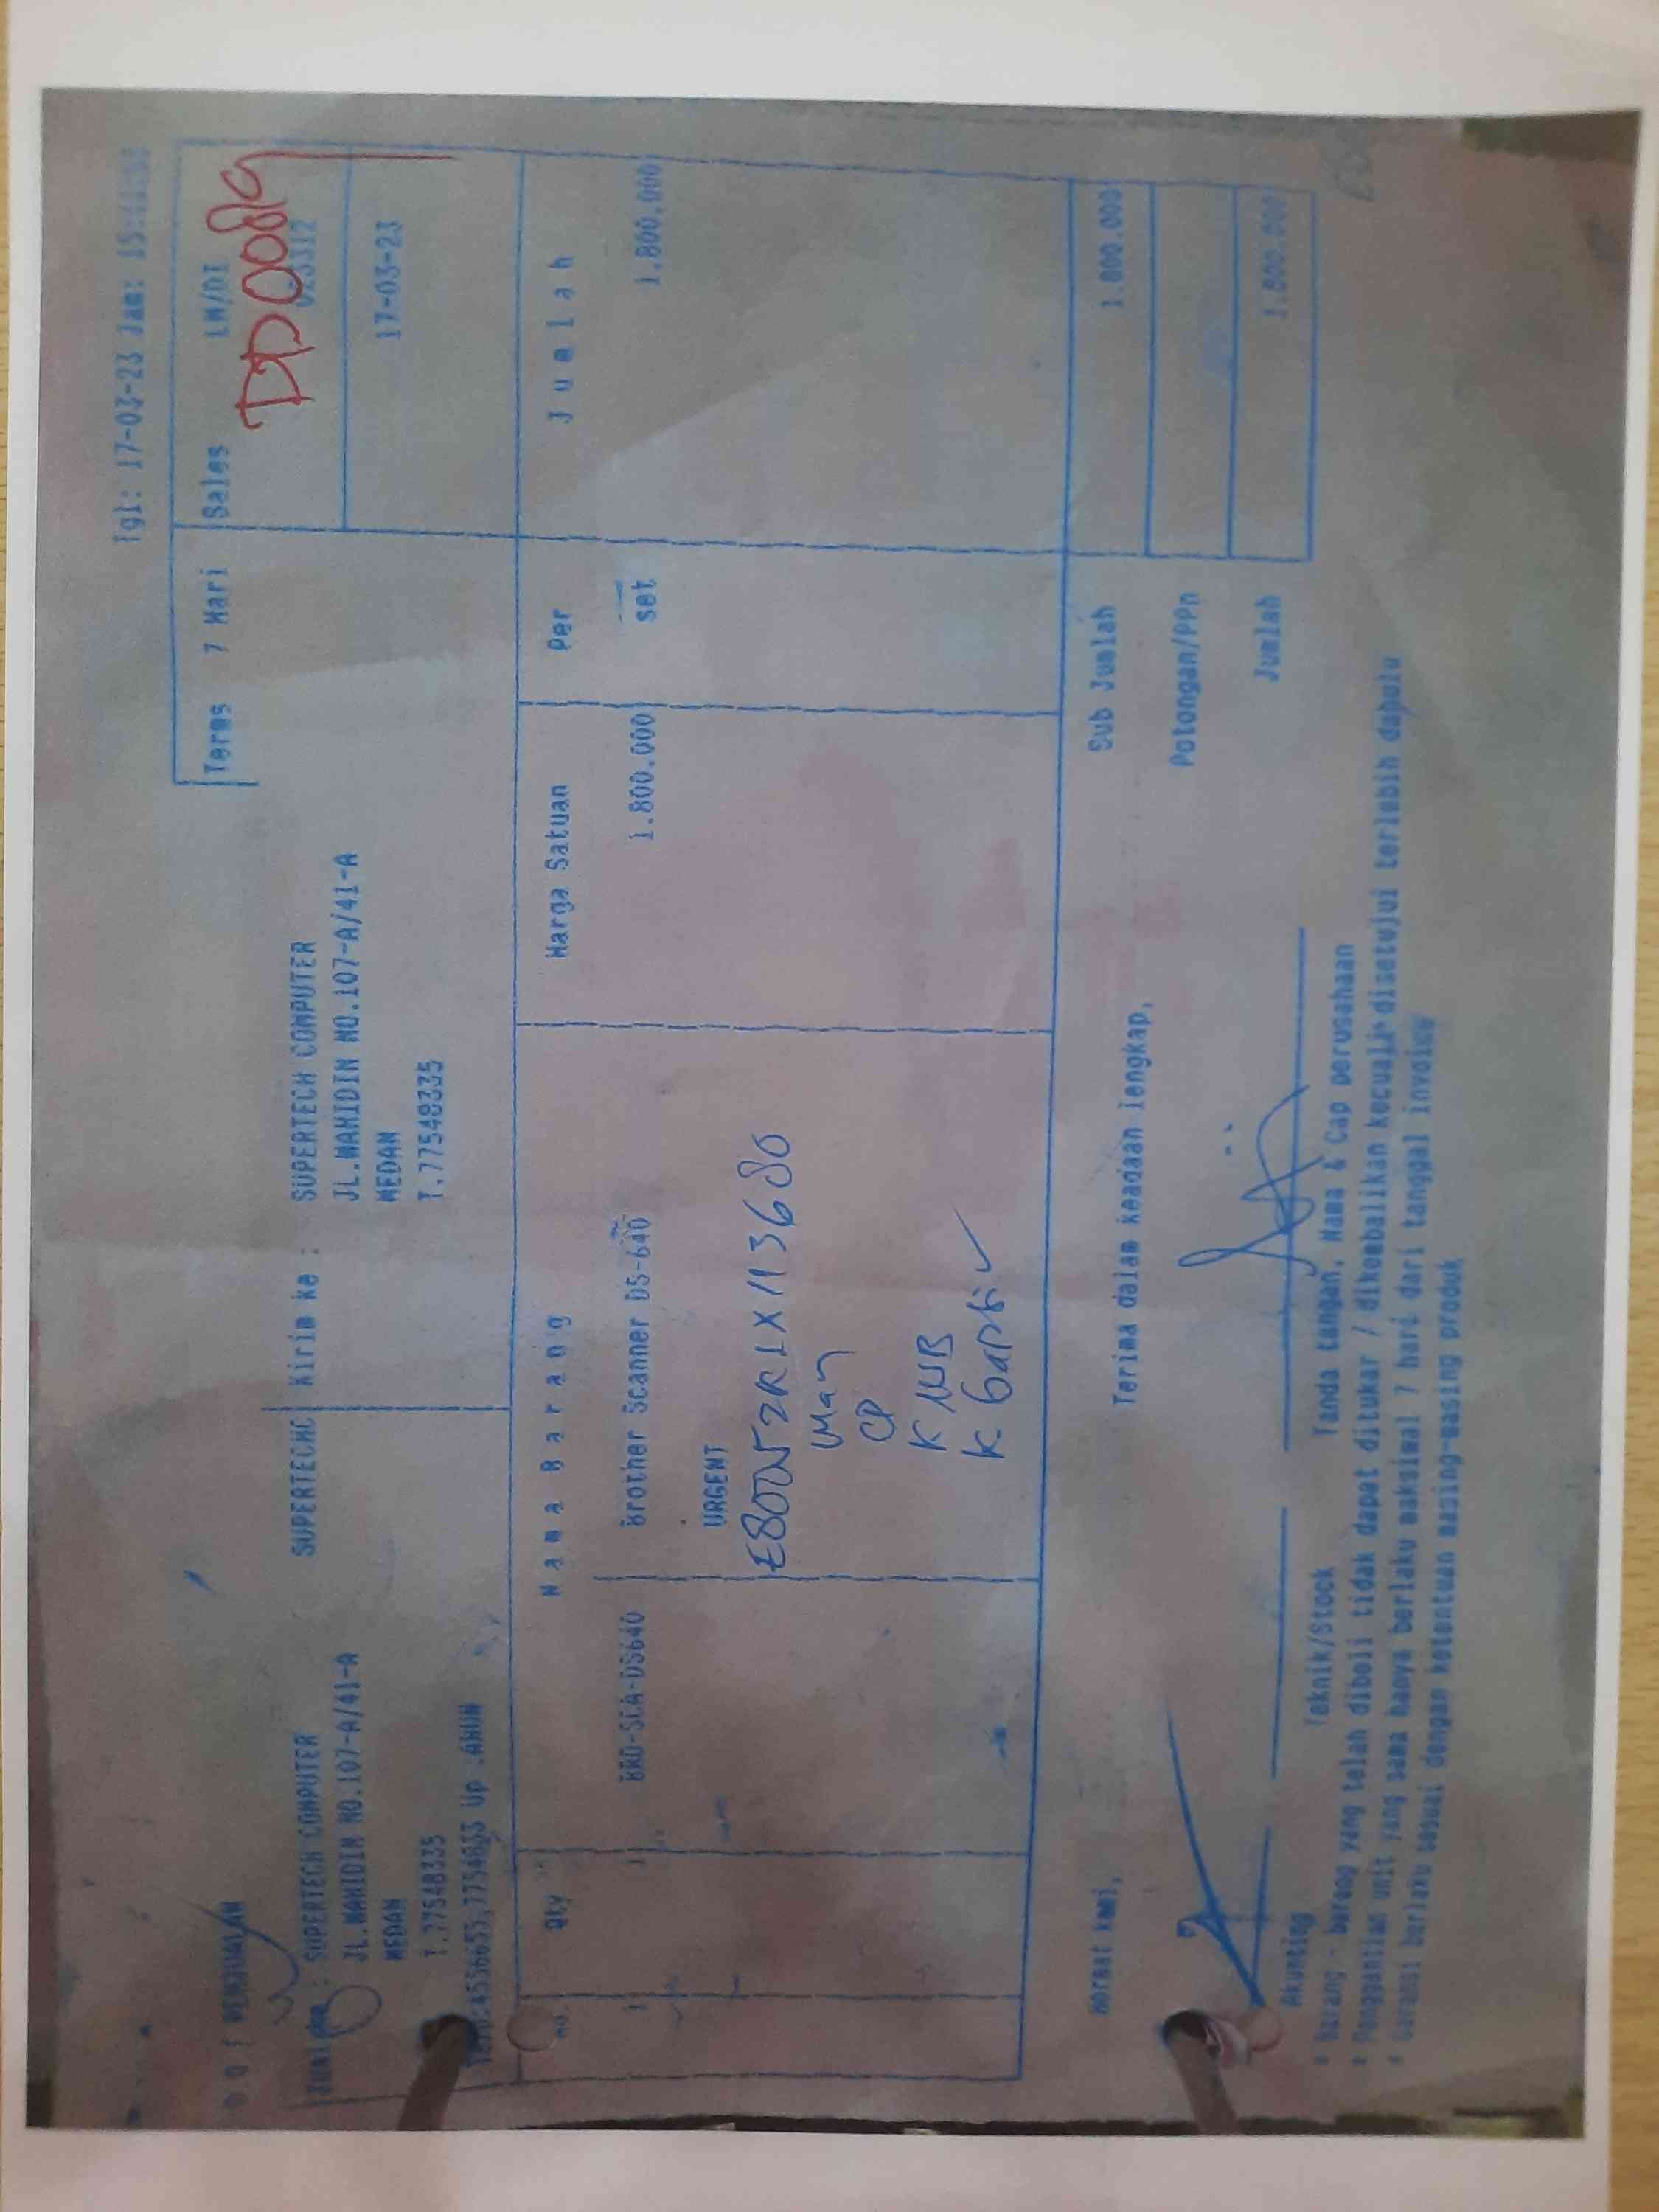 Tgl: 17-03-23 Jam:
PENJUALAN
Terms 7 Hari
Sales LM/DI
DD0089
17-03-23
SUPERTECH COMPUTER
JL.WAHIDIN NO.107-A/41-A
MEDAN
T.77548335
Up .AHUN
SUPERTECHC
Kirim ke :
SUPERTECH COMPUTER
JL.WAHIDIN NO.107-A/41-A
MEDAN
T.77548335
No. Qty Nama Barang Harga Satuan Per Jumlah
1 1 BRO-SCA-DS640 Brother Scanner DS-640 1.800.000 set 1.800.000
URGENT
K. Garansi
Hormat kami,
Terima dalam keadaan lengkap,
Sub Jumlah 1.800.000
Potongan/PPn
Jumlah 1.800.000
Akunting
Teknik/Stock
Tanda tangan, Nama & Cap perusahaan
* Barang - barang yang telah dibeli tidak dapat ditukar / dikembalikan kecuali disetujui terlebih dahulu
* Penggantian unit yang sama hanya berlaku maksimal 7 hari dari tanggal invoice
* Garansi berlaku sesuai dengan ketentuan masing-masing produk